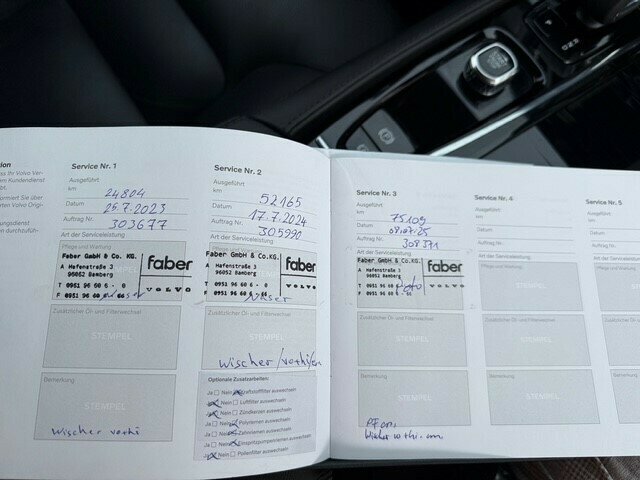 Service Nr. 1
Ausgeführt
km 24804
Datum 25.7.2023
Auftrag Nr. 303677
Art der Serviceleistung
Pflege und Wartung
Faber GmbH & Co. KG.
A Hafenstraße 3
96052 Bamberg
T 0951 96 60 6 - 0
F 0951 96 60
faber
VOLVO
Zusätzlicher Öl- und Filterwechsel
STEMPEL
Bemerkung
STEMPEL
Wischer
Service Nr. 2
Ausgeführt
km 52165
Datum 17.7.2024
Auftrag Nr. 305990
Art der Serviceleistung
Faber GmbH & Co. KG.
A Hafenstraße 3
96052 Bamberg
T 0951 96 60 6 - 0
F 0951 96 60
faber
VOLVO
Zusätzlicher Öl- und Filterwechsel
STEMPEL
Wischer
Optionale Zusatzarbeiten:
Ja Nein Kraftstofffilter auswechseln
Ja Nein Luftfilter auswechseln
Ja Nein Zündkerzen auswechseln
Ja Nein Polyriemen auswechseln
Ja Nein Zahnriemen auswechseln
Ja Nein Einspritzpumpenriemen auswechseln
Ja Nein Pollenfilter auswechseln
Service Nr. 3
Ausgeführt
km 75109
Datum 08.07.25
Auftrag Nr. 308371
Art der Serviceleistung
Faber GmbH & Co. KG.
A Hafenstraße 3
96052 Bamberg
T 0951 96 60 6
F 0951 96 60
faber
VOLVO
Zusätzlicher Öl- und Filterwechsel
STEMPEL
Bemerkung
STEMPEL
Service Nr. 4
Ausgeführt
km
Datum
Auftrag Nr.
Art der Serviceleistung
Pflege und Wartung
STEMPEL
Zusätzlicher Öl- und Filterwechsel
STEMPEL
Bemerkung
STEMPEL
Service Nr. 5
Ausgeführt
km
Datum
Auftrag Nr.